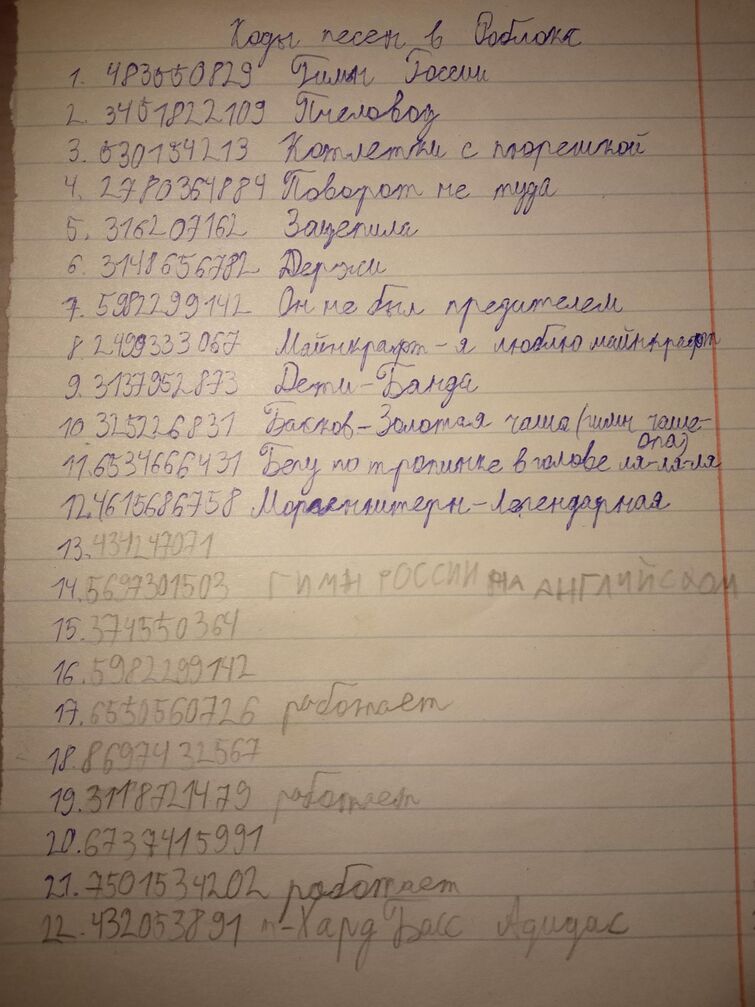 Коды песен в Роблокс
1. 483550829 Гимн России
2. 3451822109 Пчеловод
3. 530154213 Котлетки с пюрешкой
4. 2780364884 Поворот не туда
5. 316207162 Зацепила
6. 3148656782 Держи
7. 5982299142 Он не был предителем
8. 2499333067 Майнкрафт-я люблю майнкрафт
9. 3137952873 Дети-Банда
10. 325226831 Басков-Золотая чаша (гимн чаше-
опа)
11. 6534666431 Бегу по тропинке в голове ля-ля-ля
12. 4615686758 Моргенштерн-Легендарная
13. 434247071
14. 5697301503 ГИМН РОССИИ НА АНГЛИЙСКОМ
15. 374550364
16. 5982299142
17. 6530560726 работает
18. 8697432567
19. 3118721479 работает
20. 6737415991
21. 7501534202 работает
22. 432053891 -Хард Басс Адидас